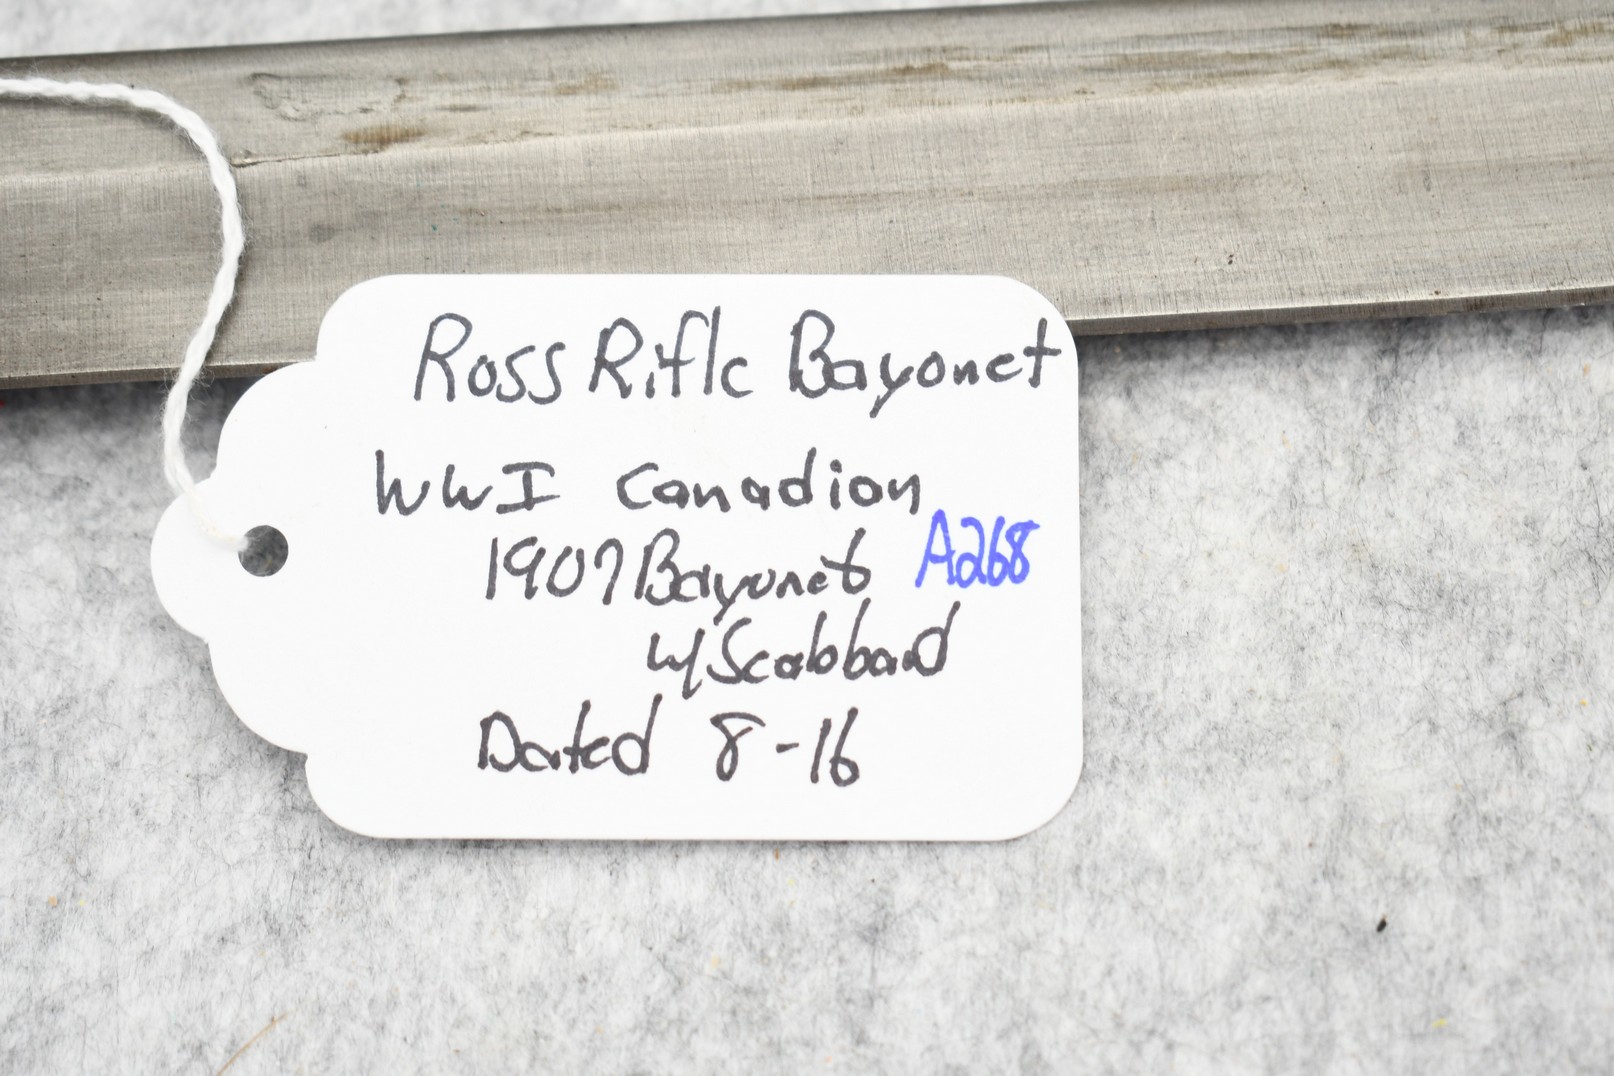 Ross Rifle Bayonet
WWI Canadian
1907 Bayonet A268
w/Scabbard
Dated 8-16